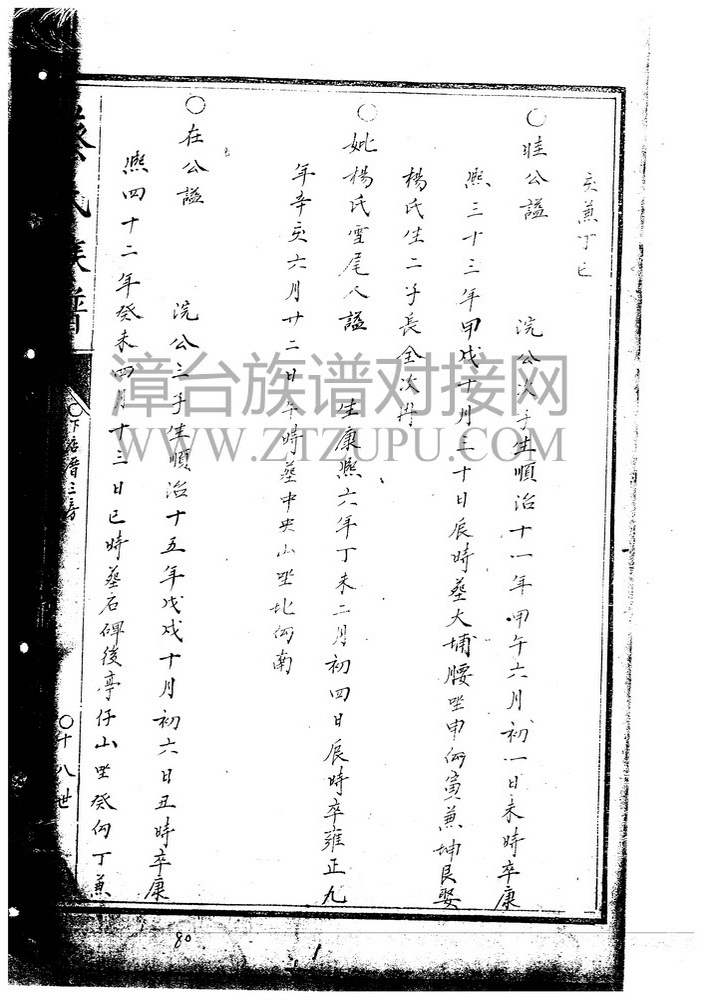 亥兼丁巳
○眭公謚 浣公次子生順治十一年甲午六月初一日未時卒康
熙三十三年甲戌十月三十日辰時塟大埔腰坐申向寅兼坤艮娶
楊氏生二子長全次冉
○妣楊氏雪尾人謚 生康熙六年丁未二月初四日辰時卒雍正九
年辛亥六月廿二日午時塟中央山坐北向南
○在公謚 浣公三子生順治十五年戊戌十月初六日丑時卒康
熙四十二年癸未四月十三日巳時塟石碑後亭仔山坐癸向丁兼
氏族譜
○下 厝三房
○十八世
80
漳台族谱对接网
WWW.ZTZUPU.COM